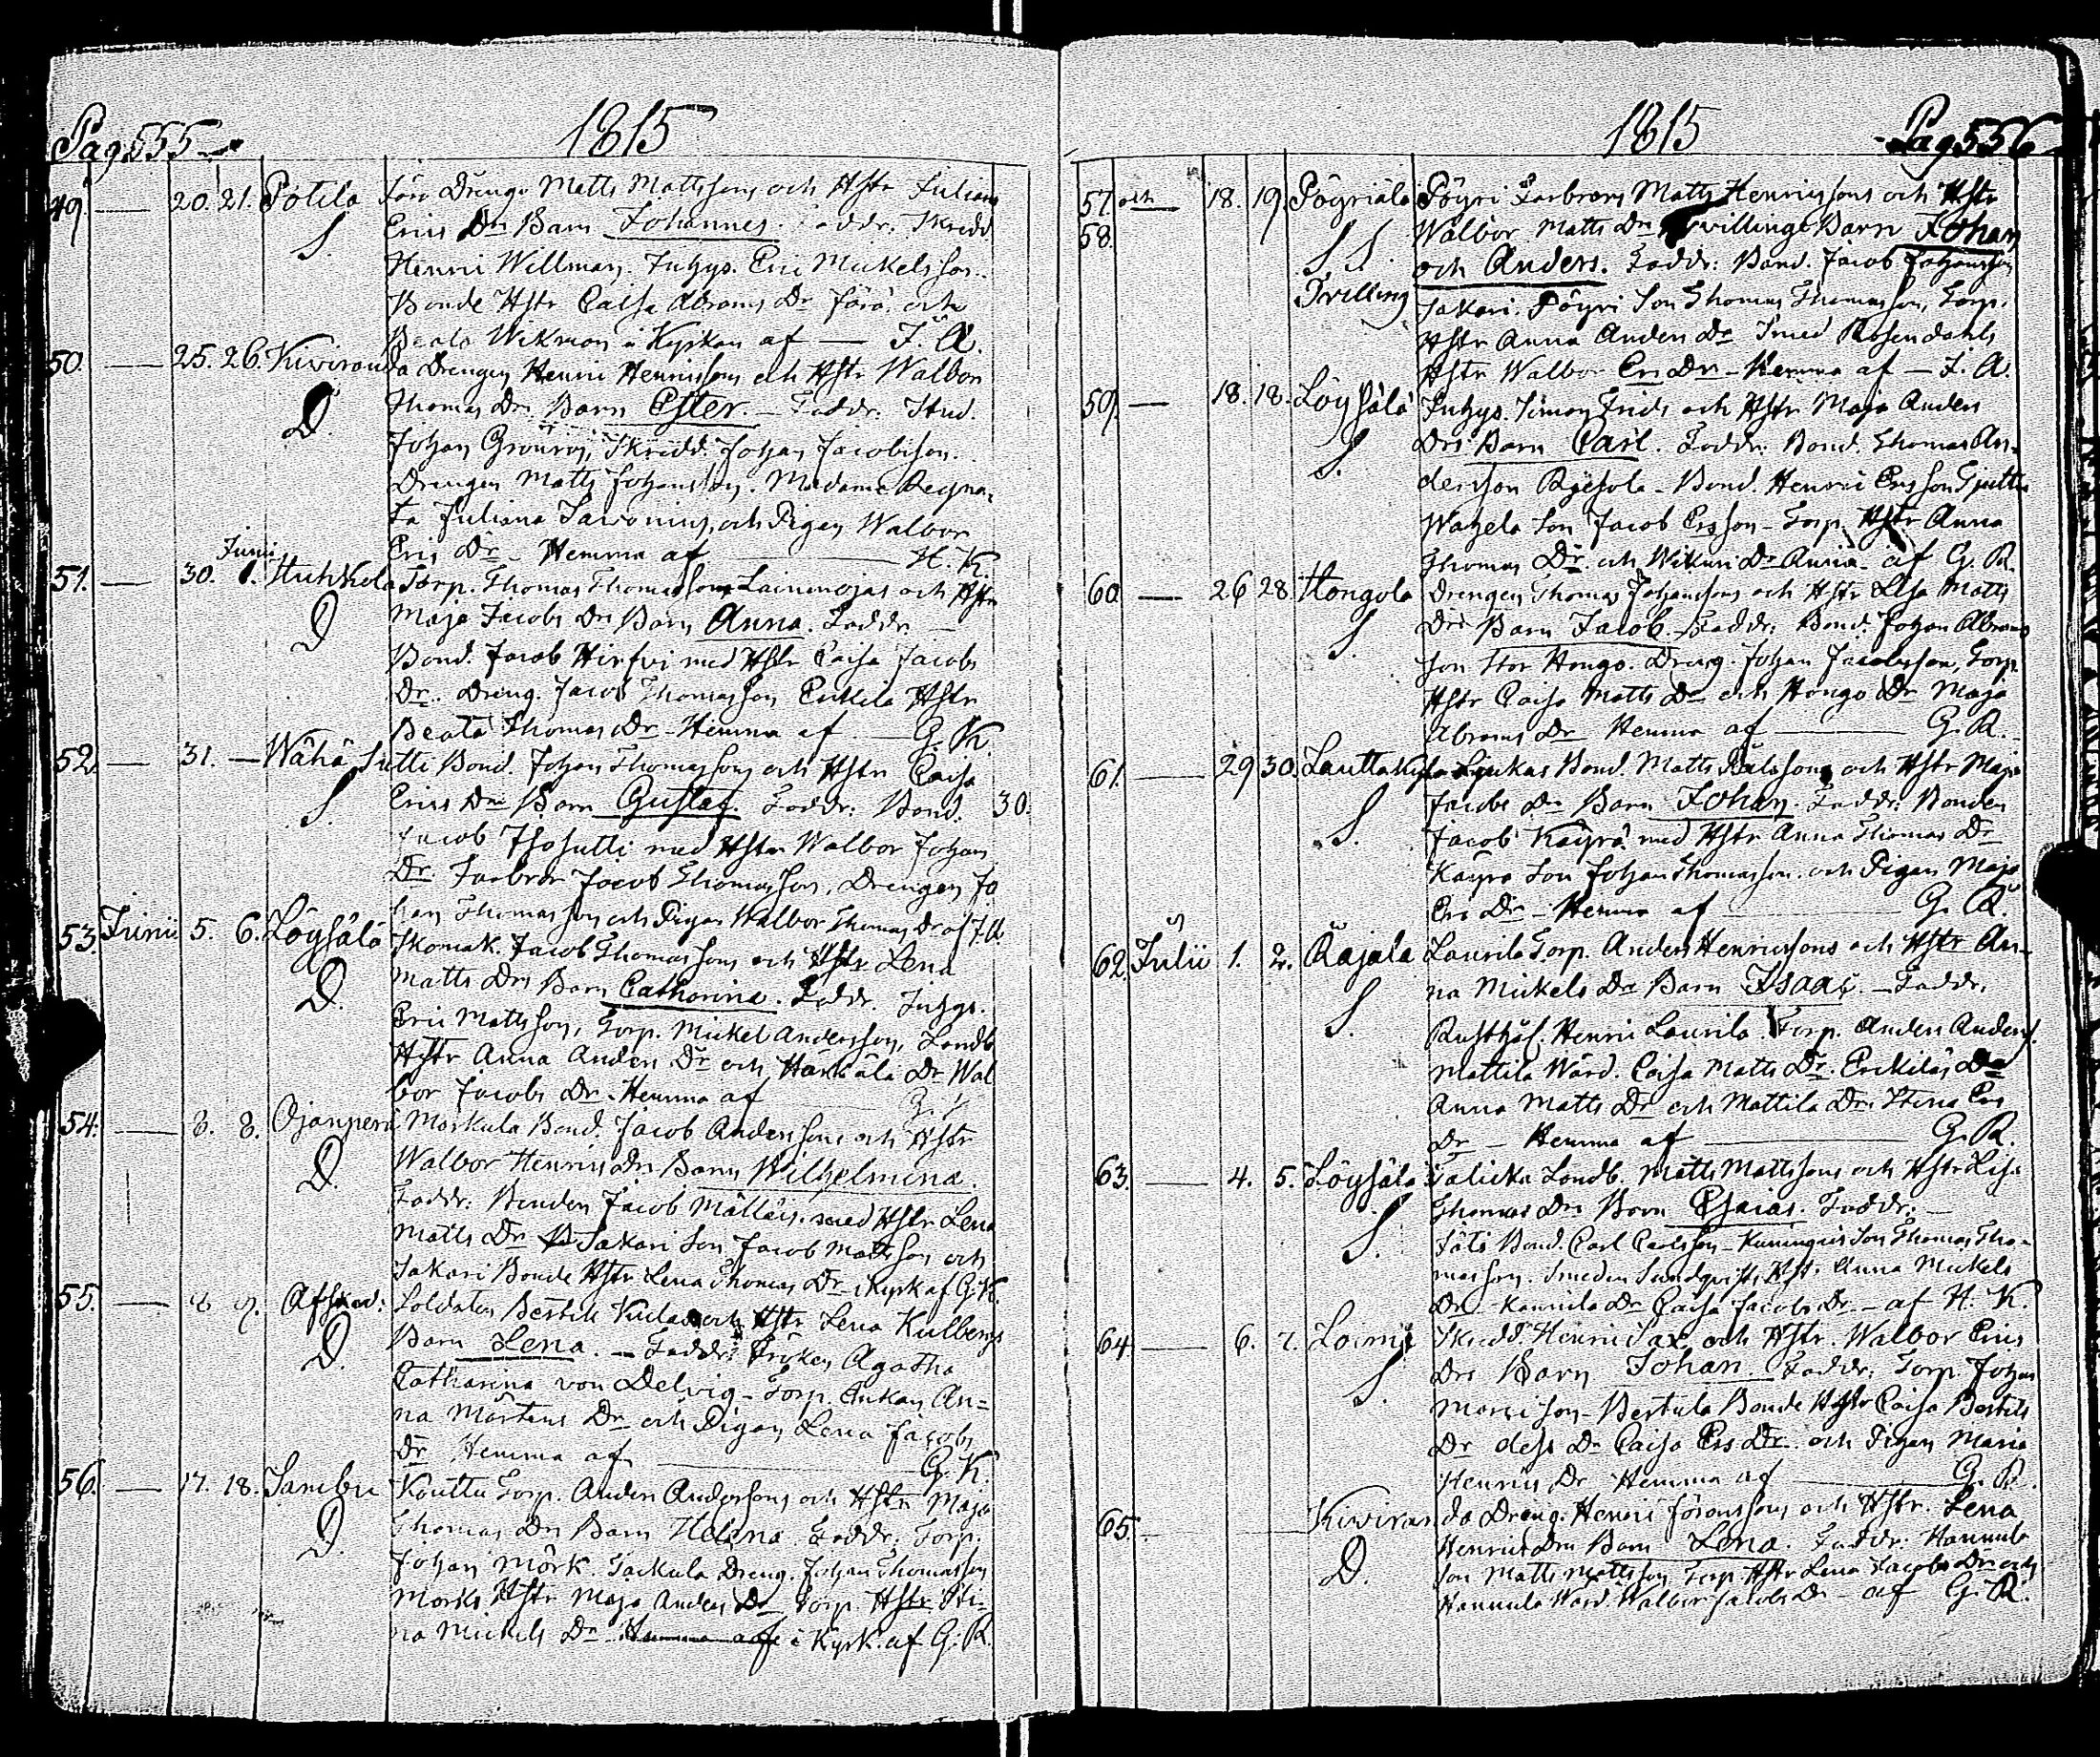 Pag. 555
1815
49. — 20. 21. Potila Drengs Matts Mattssons och Hstr Juliana
S. Erics Dr Barn Johannes. Faddr. Skrädd.
Henric Willman. Inhys. Eric Mickelsson.
Bonde Hstr Caisa Abrams Dr Järä och
Beata Wikman i Kyrkan af — J. A.
50. — 25. 26. Kiviranda Drengen Henric Henricssons och Hstr Walbor
D. Thomas Drs Barn Ester. — Faddr. Stud.
Johan Skrädd. Johan Jacobsson.
Drengen Matts Johansson. Madame Regna-
ta Juliana och Pigan Walbor
Erics Dr — Hemma af — H. K.
51. — 30. Junii 1. Huhkola Torp. Thomas Thomassons Lainenojas och Hstr
D Maja Jacobs Drs Barn Anna. Faddr. —
Bond. Jacob Hirfvi med Hstr Caisa Jacobs
Dr. Dreng. Jacob Thomasson Hstr
Beata Thomas Dr — Hemma af — G. K.
52. — 31. — Wähä Sutti Bond. Johan Thomassons och Hstr Caisa
S. Erics Drs Barn Gustaf. Faddr. Bond. 30.
Jacob Isosutti med Hstr Walbor Johans
Dr. Farbror Jacob Thomasson, Drengen Jo
han Thomasson och Pigan Walbor Thomas Dr af J. A.
53. Junii 5. 6. Löysälä Skomak. Jacob Thomassons och Hstr Lena
D. Matts Drs Barn Catharina. Faddr. Inhys.
Eric Mattsson, Torp. Mickel Andersson, Landb
Hstr Anna Anders Dr och Dr Wal
bor Jacobs Dr. Hemma af
54. — 8. 8. Ojanperä Morkula Bond. Jacob Anderssons och Hstr
D. Walbor Henrics Drs Barn Wilhelmina.
Faddr: Bonden Jacob med Hstr Lena
Matts Dr Sakari Son Jacob Mattsson och
Sakari Bonde Hstr Lena Thomas Dr i Kyrk af G. K.
55. — 9. Afsked: Soldaten Bertil och Hstr Lena Kulbergs
D. Barn Lena. — Faddr: Fröken Agatha
Catharina von Delvig — Torp. Enkan An-
na Mårtens Dr och Pigan Lena Jacobs
Dr Hemma af — G. K.
56. — 17. 18. Sambu Kouttu Torp. Anders Anderssons och Hstr Maja
D. Thomas Drs Barn Helena. Faddr: Torp.
Johan Mörk. Dreng. Johan Thomasson
Mörks Hstr Maja Anders Dr Torp. Hstr Sti-
na Mickels Dr Hemma af i Kyrk. af G. R.
1815
Pag. 556
57. och 58. 18. 19. Pöyriälä Pöyri Farbrors Matts Henricssons och Hstr
S. S. Walbor Matts Drs Tvillinge Barn Johan
och Anders. Faddr: Bond. Jacob Johansson
Tvilling Sakari. Pöyri Son Thomas Thomasson, Torp.
Hstr Anna Anders Dr Smed Rosendahls
Hstr Walbor Ers Dr — Hemma af — J. A.
59. — 18. 18. Löysälä Inhys. Simon Frids och Hstr Maja Anders
S. Drs Barn Carl. Faddr. Bond. Thomas An-
dersson Bond. Henric Ersson
Son Jacob Ersson — Torp. Hstr Anna
Thomas Dr och Dr Anna — af G. R.
60. — 26 28. Hongola Drengen Thomas Johanssons och Hstr Lisa Matts
S. Drs Barn Jacob. Faddr: Bond. Johan Abrams
son Stor Hongo. Dreng. Johan Jacobsson, Torp.
Hstr Caisa Matts Dr och Hongo Dr Maja
Abrams Dr Hemma af — G. R.
61. — 29 30. Lauttakylä Bond. Matts och Hstr Maja
S. Jacobs Drs Barn Johan. Faddr: Bonden
Jacob Käyrä med Hstr Anna Thomas Dr
Käyrä Son Johan Thomasson och Pigan Maja
Ers Dr — Hemma af — G. R.
62. Julii 1. 2. Rajala Laurila Torp. Anders Henricssons och Hstr An-
S. na Mickels Drs Barn Isaac. — Faddr.
Rusthål. Henric Laurila. Torp. Anders Anderss.
Mattila Wärd. Caisa Matts Dr. Dr
Anna Matts Dr och Mattila Drs Stina Ers
Dr — Hemma af — G. R.
63. — 4. 5. Löysälä Landb. Matts Mattssons och Hstr Lisa
S. Thomas Drs Barn Esaias. Faddr: —
Bond. Carl Carlsson — Son Thomas Tho-
masson. Smeden Sundqvists Hstr Anna Mickels
Dr — Dr Caisa Jacobs Dr — af H. K.
64. — 6. 7. Skrädd. Henric Sax och Hstr. Walbor Erics
S. Drs Barn Johan Faddr: Torp. Johan
Bertula Bonde Hstr Caisa Bertils
Dr dess Dr Caisa Ers Dr och Pigan Maria
Henrics Dr Hemma af — G. R.
65. Kiviranda Dreng. Henric Göranssons och Hstr. Lena
D. Henrics Drs Barn Lena. Faddr: Hannula
Son Matts Mattsson Torp. Hstr Lena Jacobs Dr och
Hannula Wärd. Walbor Jacobs Dr — af G. R.